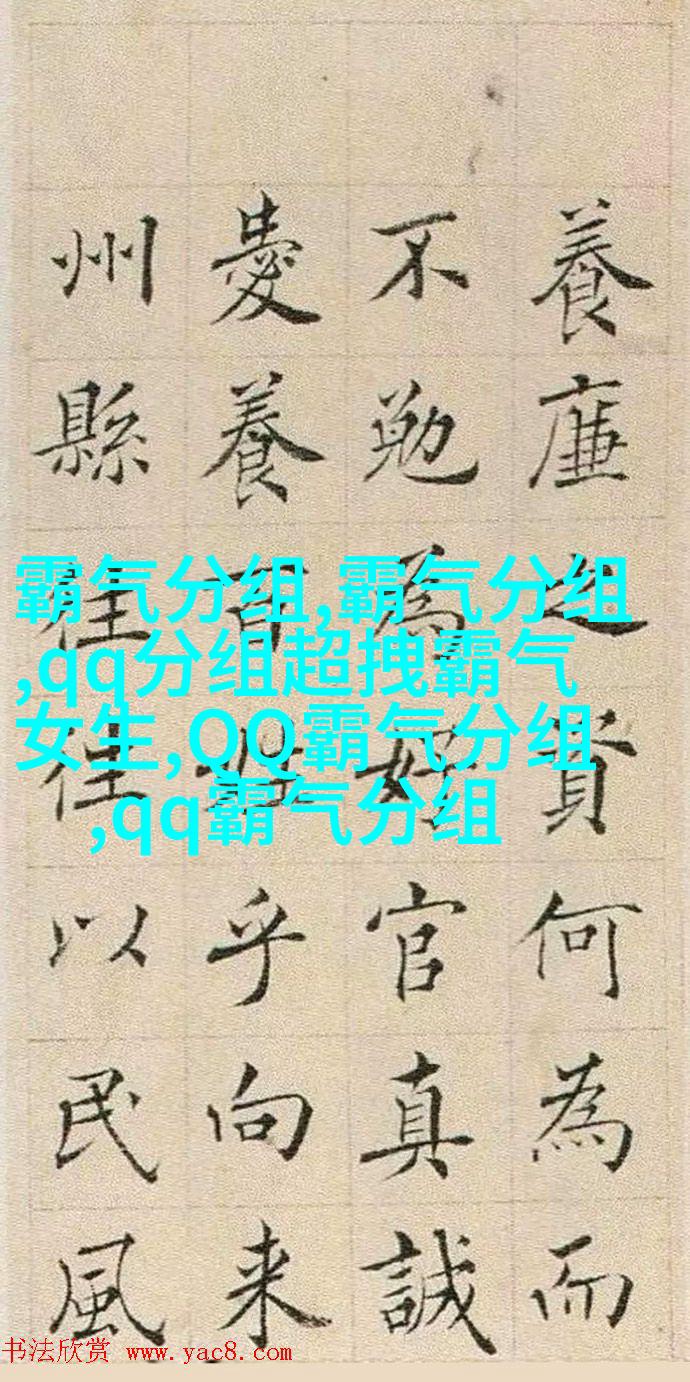 養廉之資何為而
不勉為好官真誠
愛養百姓乎向来
州縣往往以民風
霸气分组,霸气分组
,qq分组超拽霸气
女生,QQ霸气分组
,qq霸气分组
书法欣赏 www.yac8.com